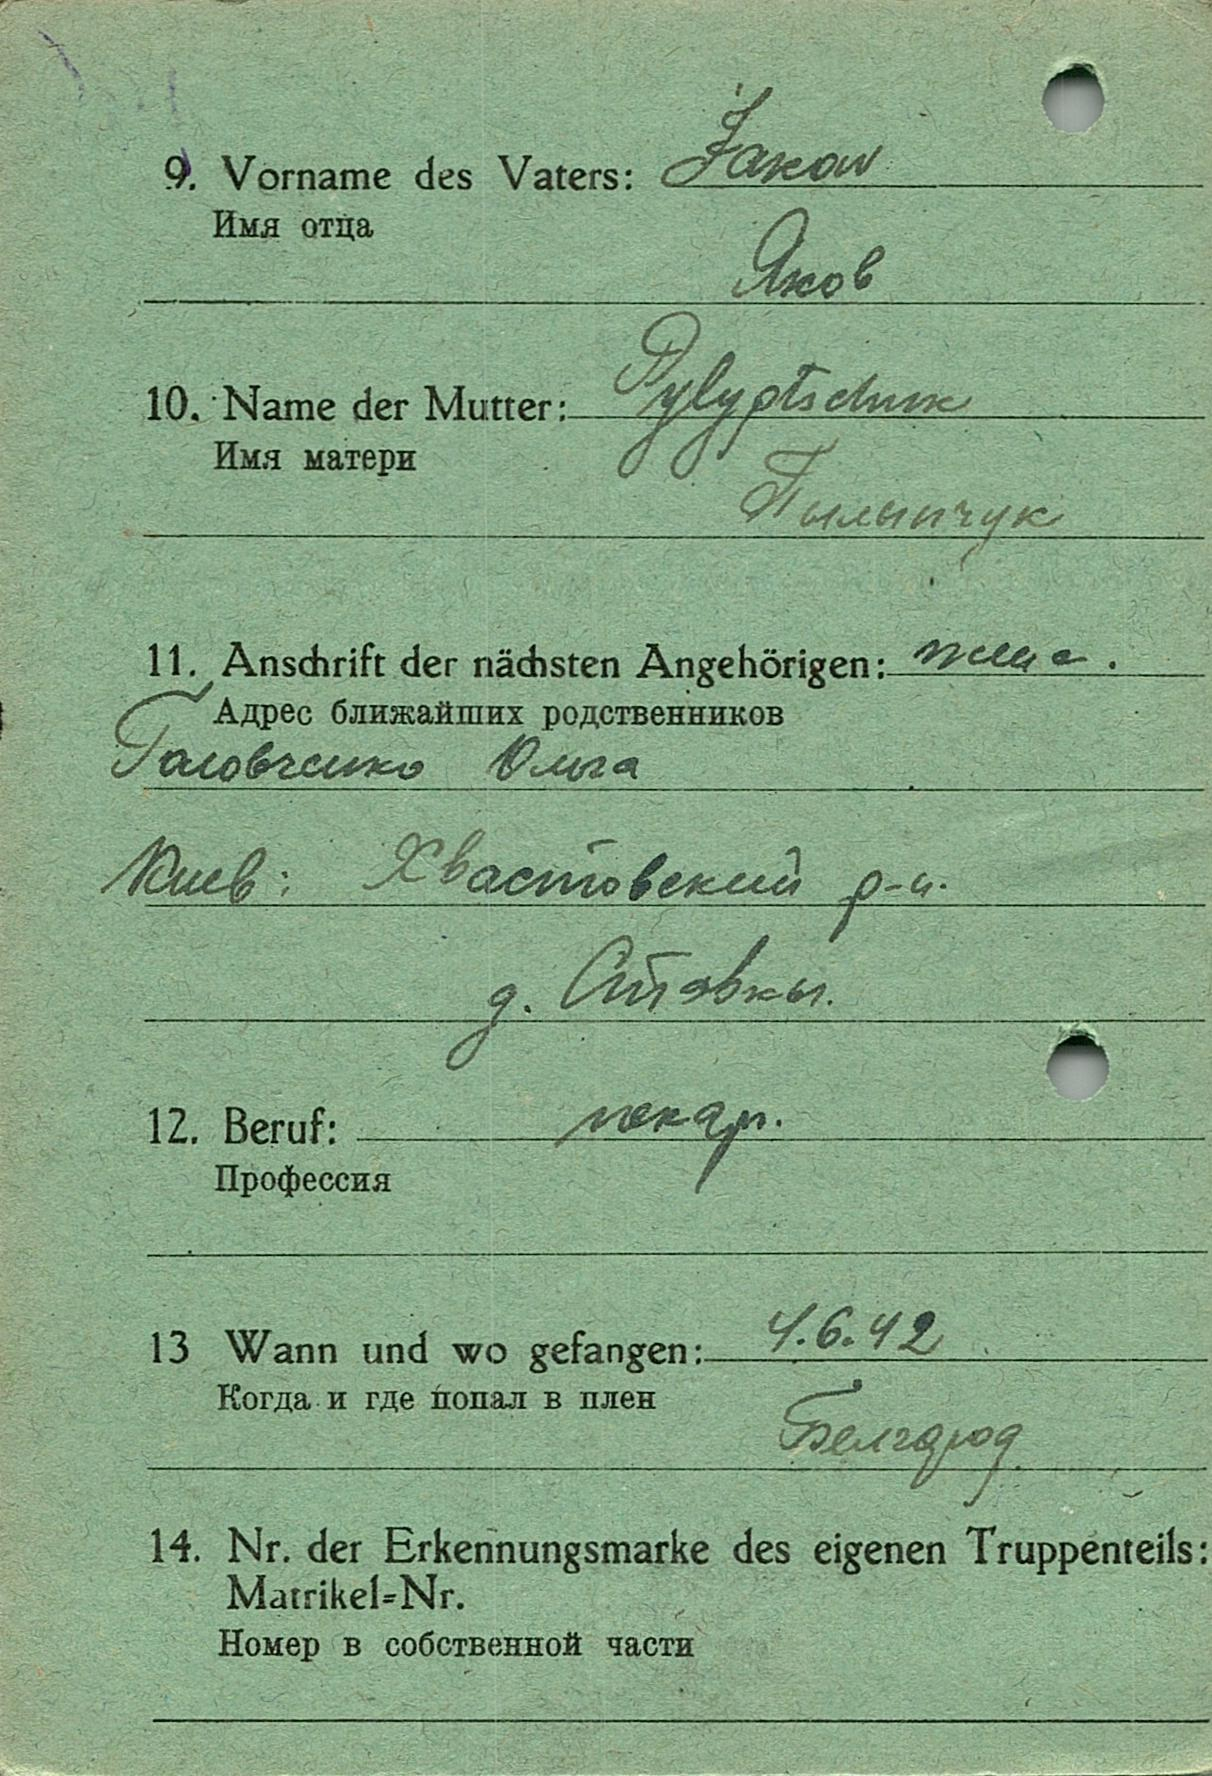 9. Vorname des Vaters: Jakow
Имя отца
Яков
10. Name der Mutter: Pylyptschuk
Имя матери
Пылыпчук
11. Anschrift der nächsten Angehörigen: жена.
Адрес ближайших родственников
Головченко Ольга
Киев: Хвастовский р-н.
д. Ставкы.
12. Beruf: пекар.
Профессия
13 Wann und wo gefangen: 4.6.42
Когда и где попал в плен
Белгород
14. Nr. der Erkennungsmarke des eigenen Truppenteils:
Matrikel=Nr.
Номер в собственной части